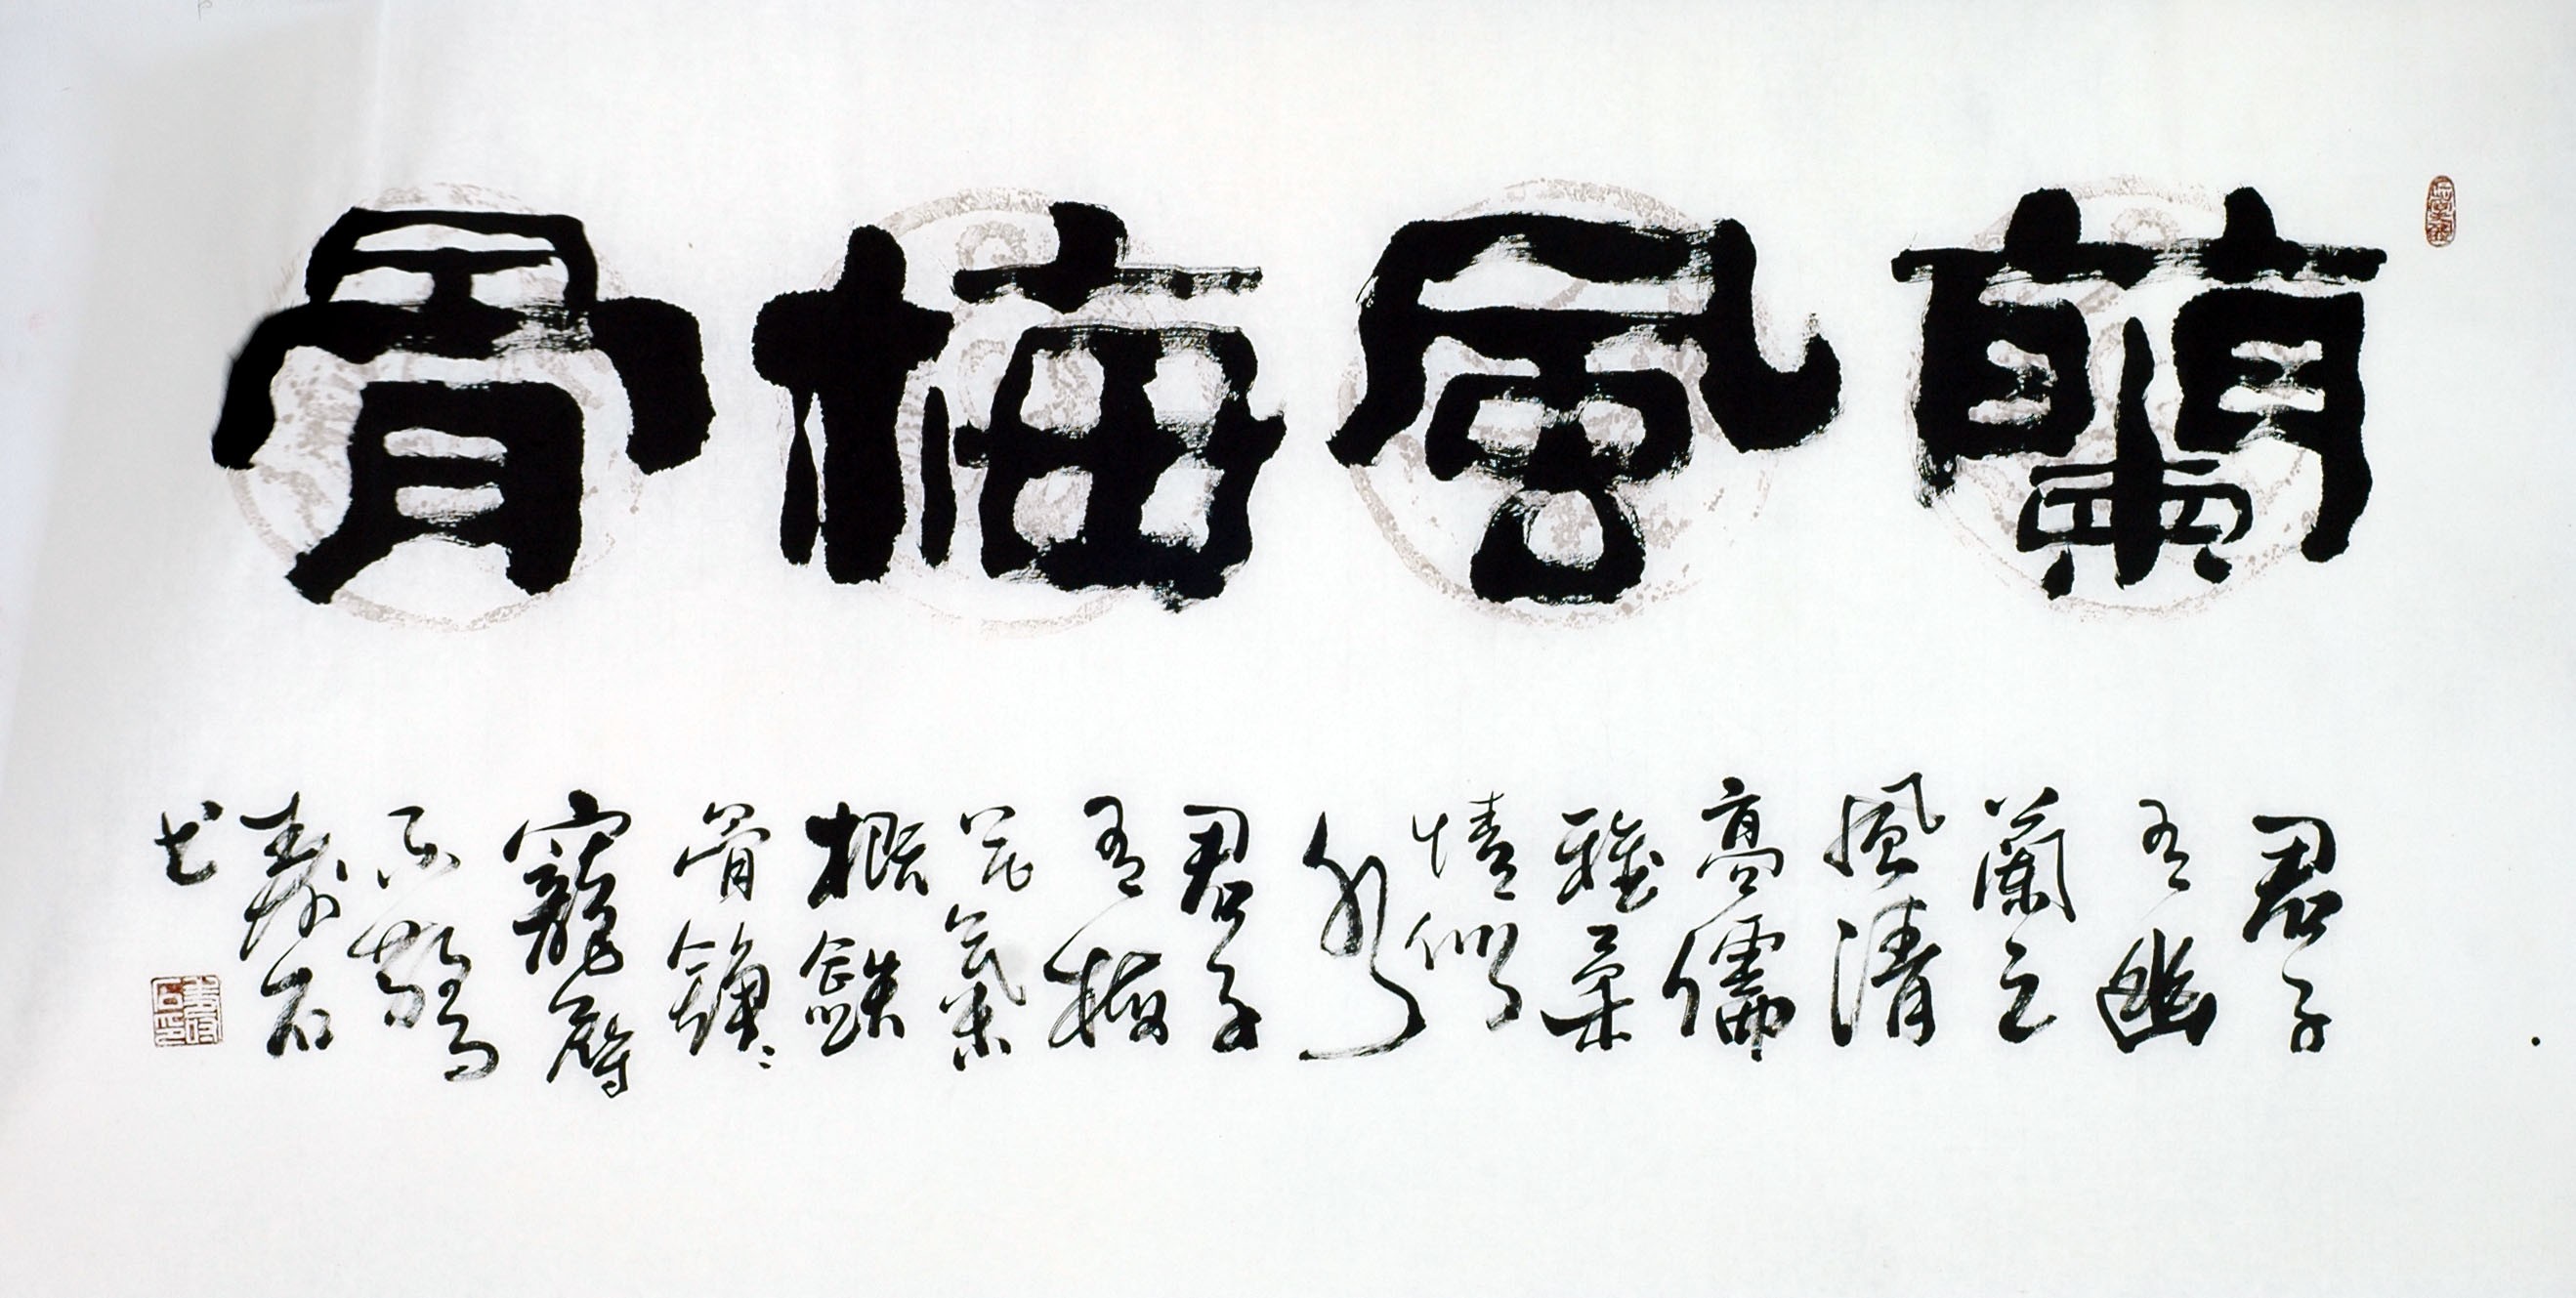 蘭風梅骨
君子
有幽
蘭之
風清
高儒
雅柔
情似
水
君子
有梅
花氣
概鐵
骨錚〻
寵辱
不驚
壽石
書